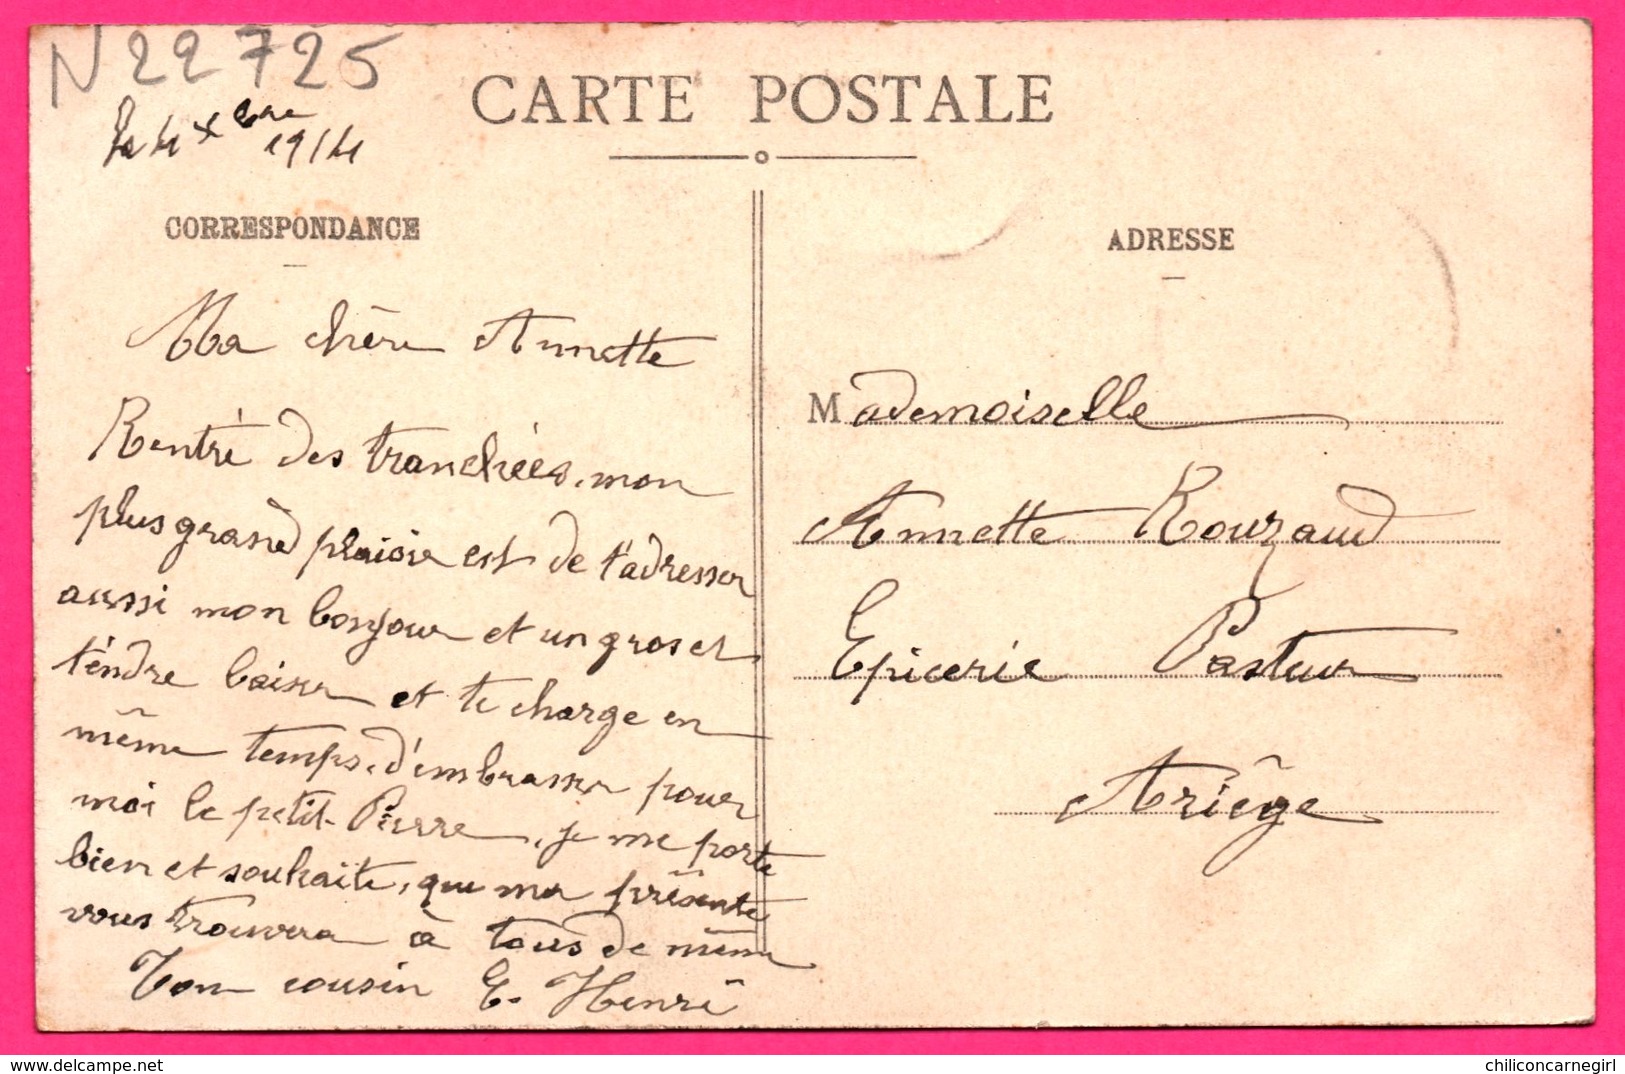 N 22 725
CARTE POSTALE
le 4 Xbre
1914
CORRESPONDANCE
Ma chère Annette
Rentré des tranchées, mon
plus grand plaisir est de t'adresser
aussi mon bonjour et un gros et
tendre baiser et te charge en
même temps, d'embrasser pour
moi le petit Pierre, je me porte
bien et souhaite, que ma présente
vous trouvera à tous de même
Ton cousin E. Henri
ADRESSE
Mademoiselle
Annette Rouzaud
Epicerie Pasteur
Ariège
chiliconcarnegirl